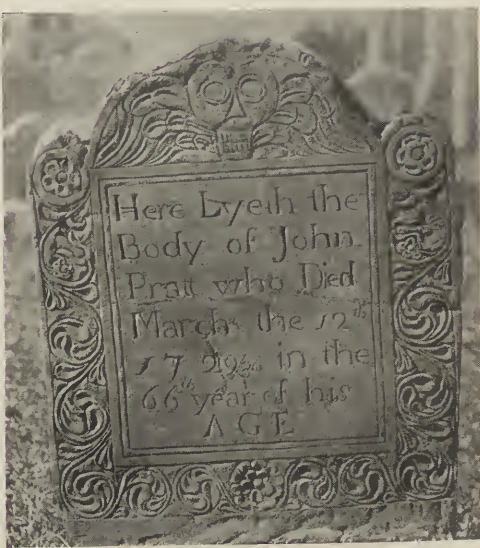 Here Lyeth the
Body of John
Pratt who Died
March the 12th
in the
66th year of his
AGE